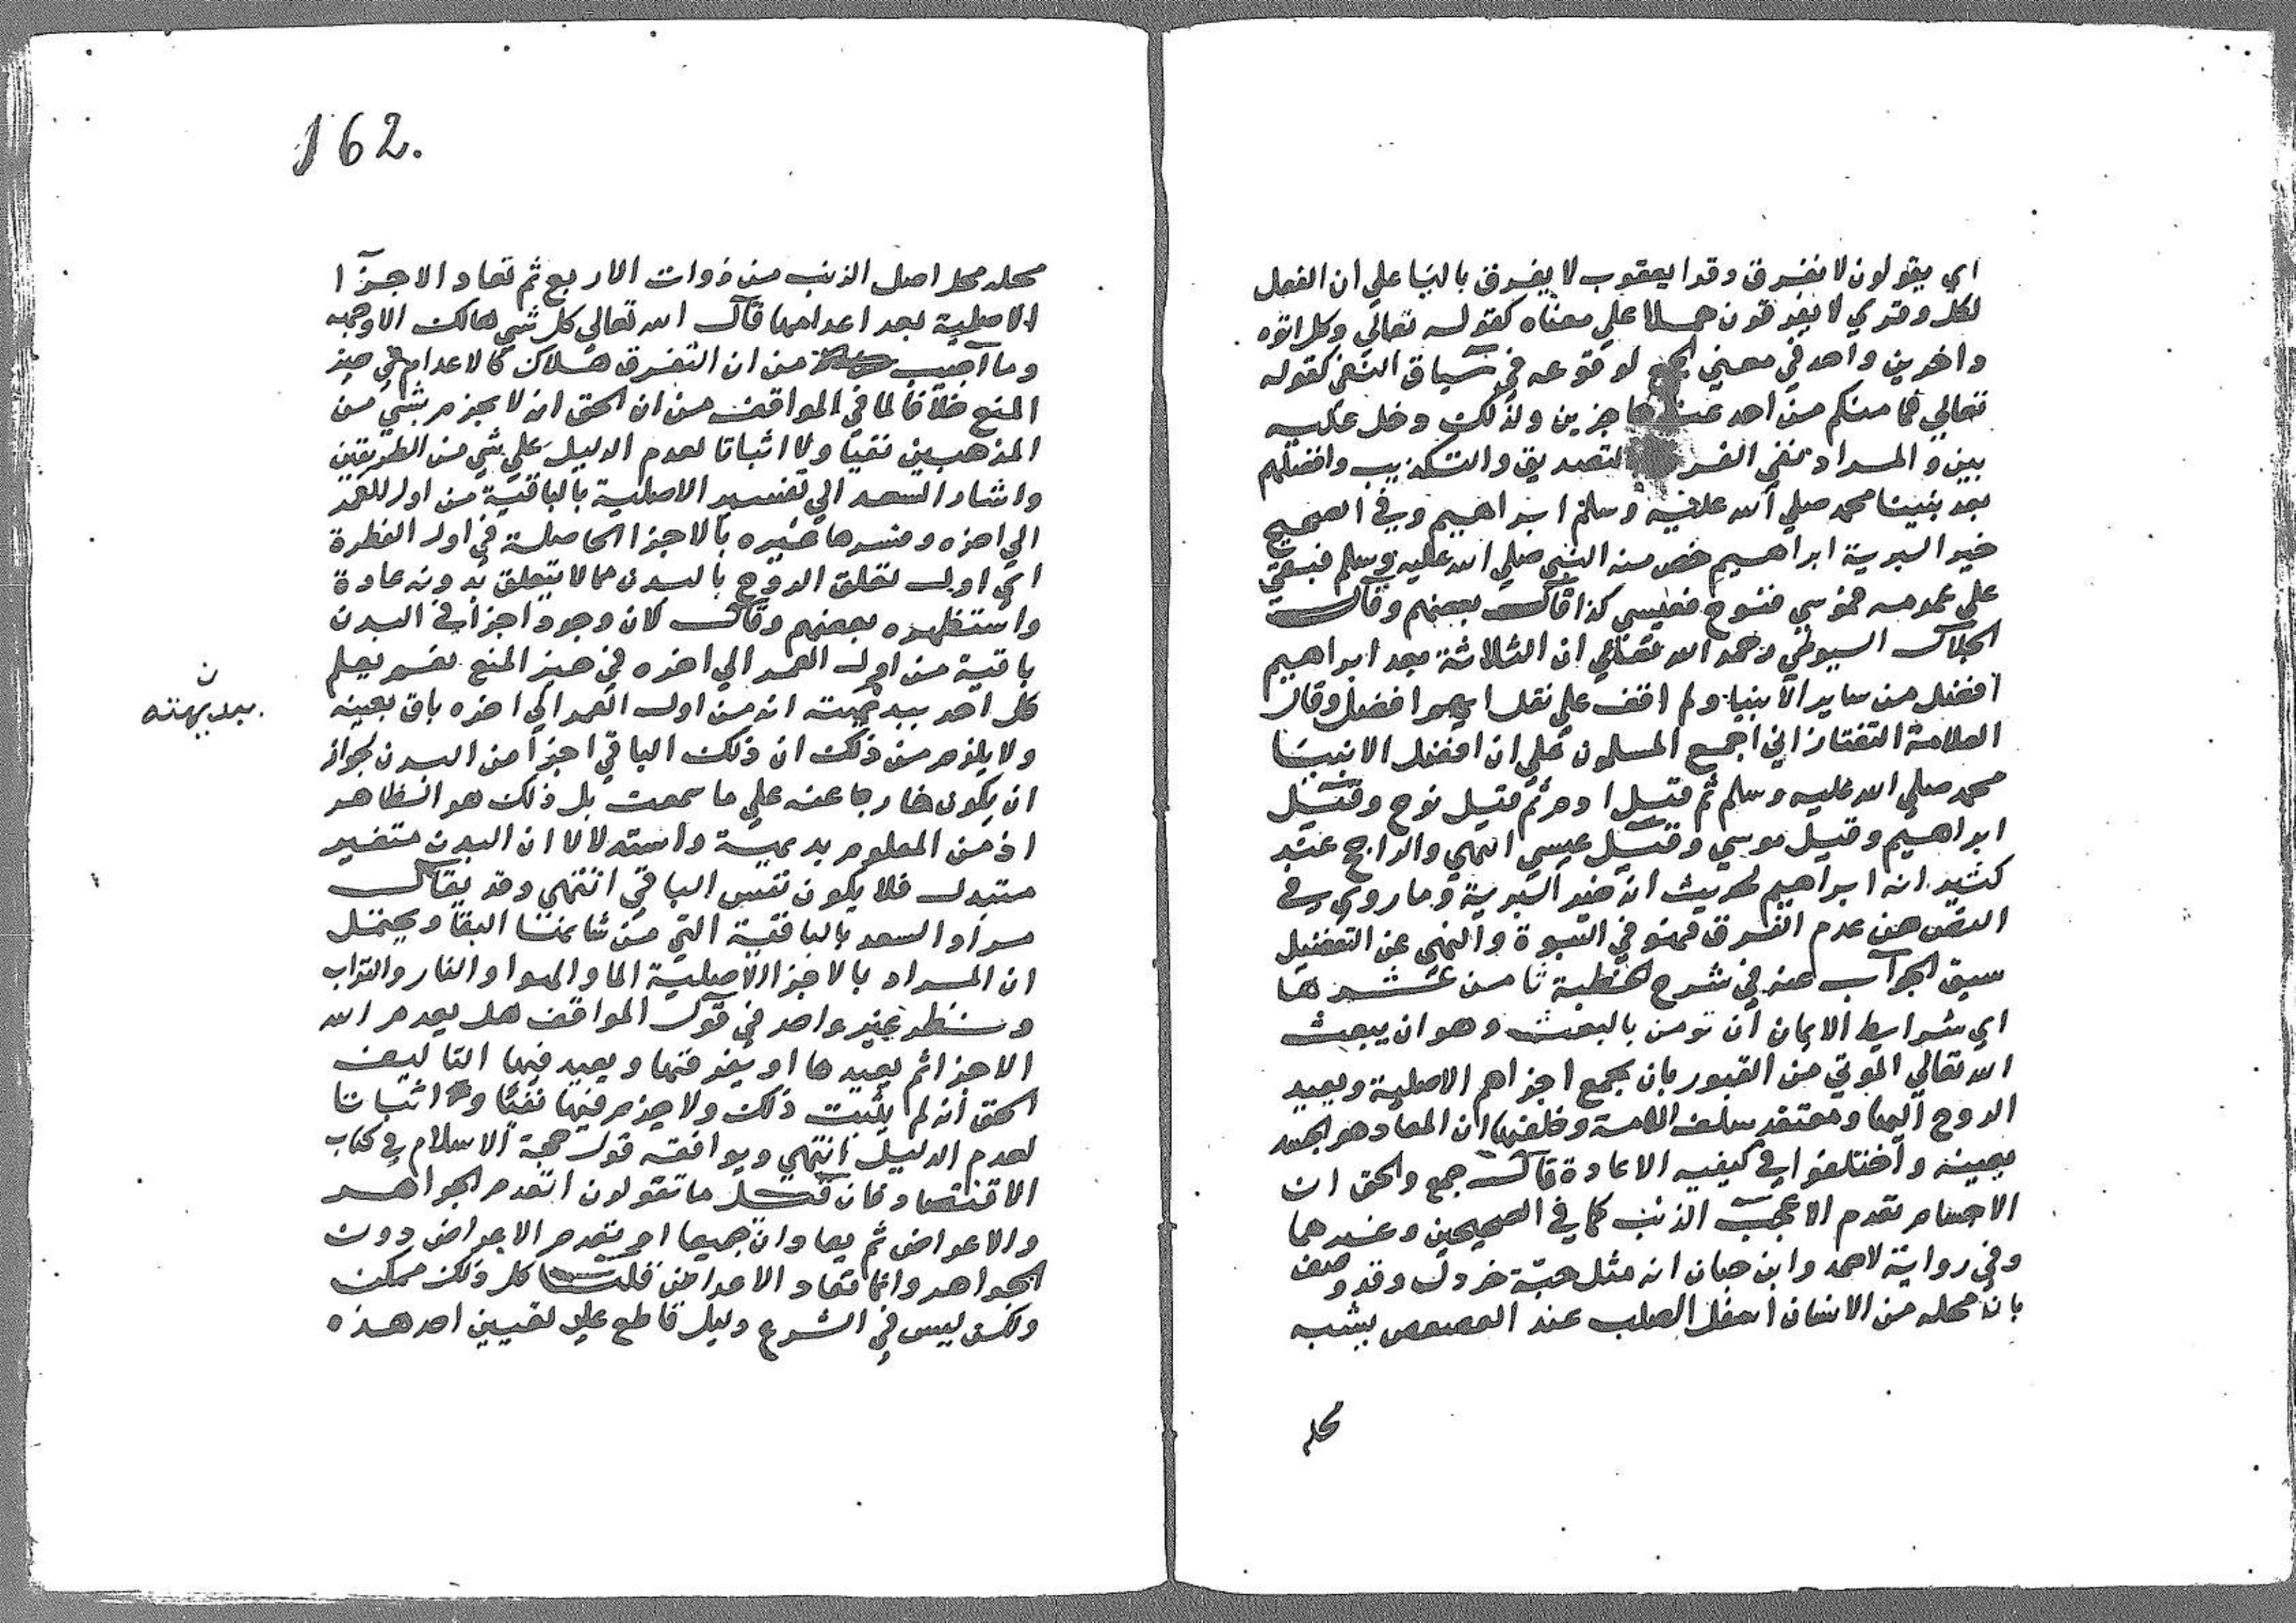 اي يقولون لا نفرق وقرا يعقوب لا يفرق باليا علي ان الفعل
لكل وقري لا يفرقون حملا علي معناه كقوله تعالي وكل اتوه
داخرين واحد في معني الجمع لوقوعه في سياق النفي كقوله
تعالي فما منكم من احد عنه حاجزين ولذلك دخل عليه
بين والمراد نفي الفرق بالتصديق والتكذيب وافضلهم
بعد نبينا محمد صلي الله عليه وسلم ابراهيم وفي الصحيح
خير البرية ابراهيم خص منه النبي صلي الله عليه وسلم فبقي
علي عمومه فموسي فنوح فعيسي كذا قال بعضهم وقال
الجلال السيوطي رحمه الله تعالي ان الثلاثة بعد ابراهيم
افضل من ساير الانبيا ولم اقف علي نقل ايهم افضل وقال
العلامة التفتازاني اجمع المسلمون علي ان افضل الانبيا
محمد صلي الله عليه وسلم ثم قيل ادم ثم قيل نوح وقيل
ابراهيم وقيل موسي وقيل عيسي انتهي والراجح عند
كثير انه ابراهيم لحديث انه خير البرية وما روي في
النص من عدم الفرق فهو في النبوة والنهي عن التفضيل
سبق الجواب عنه في شرح الخطبة ثامن عشرها
اي شرايط الايمان ان تومن بالبعث وهو ان يبعث
الله تعالي الموتي من القبور بان يجمع اجزاهم الاصلية ويعيد
الروح اليها ومعتقد سلف الامة وخلفها ان المعاد هو الجسد
بعينه واختلفوا في كيفيه الاعادة قال جمع والحق ان
الاجسام تعدم الا عجب الذنب كما في الصحيحين وغيرهما
وفي رواية لاحمد وابن حبان انه مثل حبة خردل وقد وصف
بان محله من الانسان اسفل الصلب عند العصعص يشبه
محله
162.
محله محل اصل الذنب من ذوات الاربع ثم تعاد الاجزآ ا
الاصلية بعد اعدامها قال الله تعالي كل شي هالك الا وجهه
وما اجيب من ان التفرق هلاك كالاعدام في حيز
المنع خلافا لما في المواقف من ان الحق انه لا يجزم بشي من
المذهبين نفيا ولا اثباتا لعدم الدليل علي شي من الطريقين
واشار السعد الي تفسير الاصلية بالباقية من اول العمر
الي اخره وفسرها غيره بالاجزا الحاصلة في اول الفطرة
اي اول تعلق الروح بالبدن مما لا يتعلق بدونه عادة
واستظهره بعضهم وقال لان وجود اجزا في البدن
باقية من اول العمر الي اخره في حيز المنع نعم يعلم
كل احد ببديهيته انه من اول العمر الي اخره باق بعينه
ن
ببديهته
ولا يلزم من ذلك ان ذلك الباقي اجزا من البدن لجواز
ان يكون خارجا عنه علي ما سمعت بل ذلك هو الظاهر
اذ من المعلوم بديهية واستدلالا ان البدن متغير
متبدل فلا يكون نفس الباقي انتهي وقد يقال
مراد السعد بالباقية التي من شانها البقا ويحتمل
ان المراد بالاجزا الاصلية الما والهوا والنار والتراب
ونظر غير واحد في قول المواقف هل يعدم الله
الاجزا ثم يعيدها او يفرقها ويعيد فيها التاليف
الحق انه لم يثبت ذلك ولا جزم فيها نفيا ولا اثباتا
لعدم الدليل انتهي ويوافقه قول حجة الاسلام في كتاب
الاقتصاد فان قيل ما تقولون اتعدم الجواهر
والاعراض ثم يعادان جميعا ام تعدم الاعراض دون
الجواهر وانما تعاد الاعراض قلت كل ذلك ممكن
ولكن ليس في الشرع دليل قاطع علي تعيين احد هذه